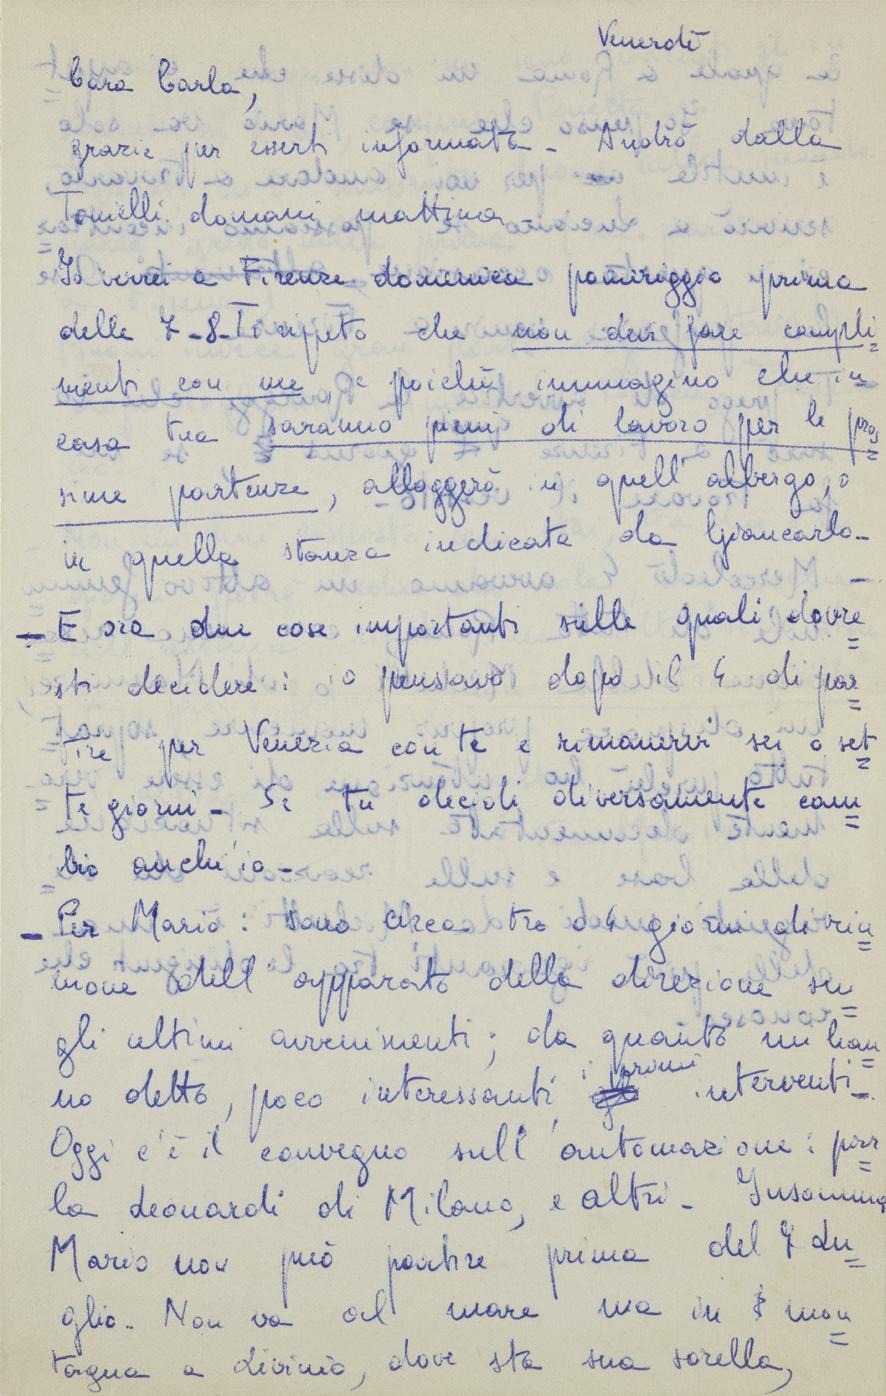 Venerdì
Cara Carla,
grazie per esserti informata - Andrò dalla
Tonelli domani mattina
Io verrei a Firenze domenica pomeriggio prima
delle 7-8. Ti ripeto che non devi fare compli=
menti con me, e poiché immagino che in
casa tua saranno pieni di lavoro per le pros=
sime partenze, alloggerò in quell'albergo, o
in quella stanza indicata da Giancarlo -
- E ora due cose importanti sulle quali dovre=
sti decidere: io pensavo dopo il 4 di par=
tire per Venezia con te e rimanervi sei o set=
te giorni - Se tu decidi diversamente cam=
bio anch'io -
- Per Mario: sono circa tre o 4 giorni di riu=
nione dell'apparato della direzione su=
gli ultimi avvenimenti; da quanto mi han=
no detto, poco interessanti i primi interventi -
Oggi c'è il convegno sull'automazione: par=
la Leonardi di Milano, e altri - Insomma
Mario non può partire prima del 7 Lu=
glio. Non va al mare ma in mon=
tagna a , dove sta sua sorella,